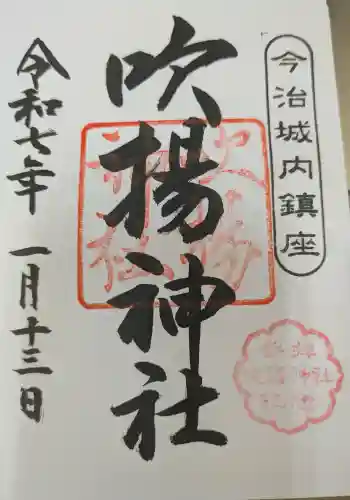 今治城内鎮座
吹揚神社
令和七年 一月十三日